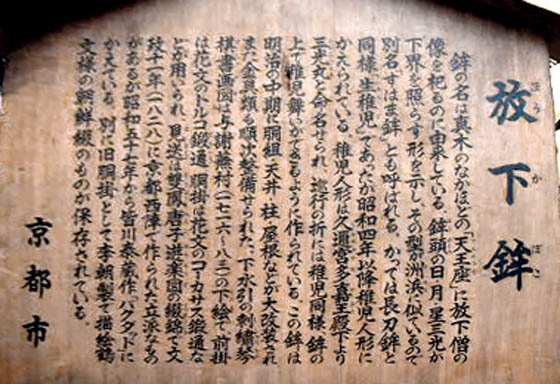 放下鉾
ほうかぼこ
鉾の名は真木のなかほどの「天王座」に放下僧の
像を祀るのに由来している。鉾頭の日・月・星三光が
下界を照らす形を示し、その型が洲浜に似ているので
別名すはま鉾とも呼ばれる。かつては長刀鉾と
同様「生稚児」であったが昭和四年以降稚児人形に
かえられている。稚児人形は久邇宮多嘉王殿下より
三光丸と命名せられ、巡行の折には稚児同様、鉾の
上で稚児舞ができるように作られている。この鉾は
明治の中期に胴組、天井、柱、屋根などが大改装され
また金具類も順次整備せられた。下水引の刺繍琴
棋書画図は与謝蕪村(一七一六〜八三)の下絵で前掛
は花文のトルコ緞通、胴掛は花文のコーカサス緞通な
どが用いられ、見送は双鳳唐子遊楽図の綴錦で文
政十一年(一八二八)に京都西陣で作られた立派なもの
があるが昭和五十七年から皆川泰蔵作「バグダッド」に
かえている。別に旧胴掛として李朝製で描絵鶴
文様の朝鮮綴のものが保存されている。
京都市